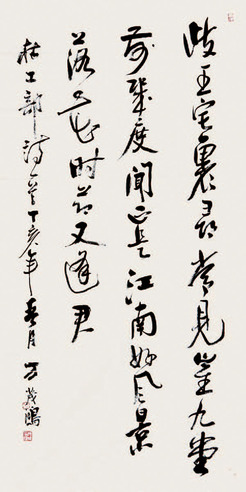 岐王宅裏尋常見崔九堂
前幾度聞正是江南好风景
落花时節又逢君
杜工部詩一首丁亥年春月